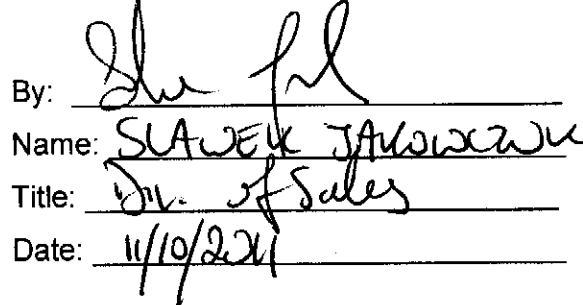 By:
Name: SLAWEK
Title: Dir. of Sales
Date: 11/10/2011